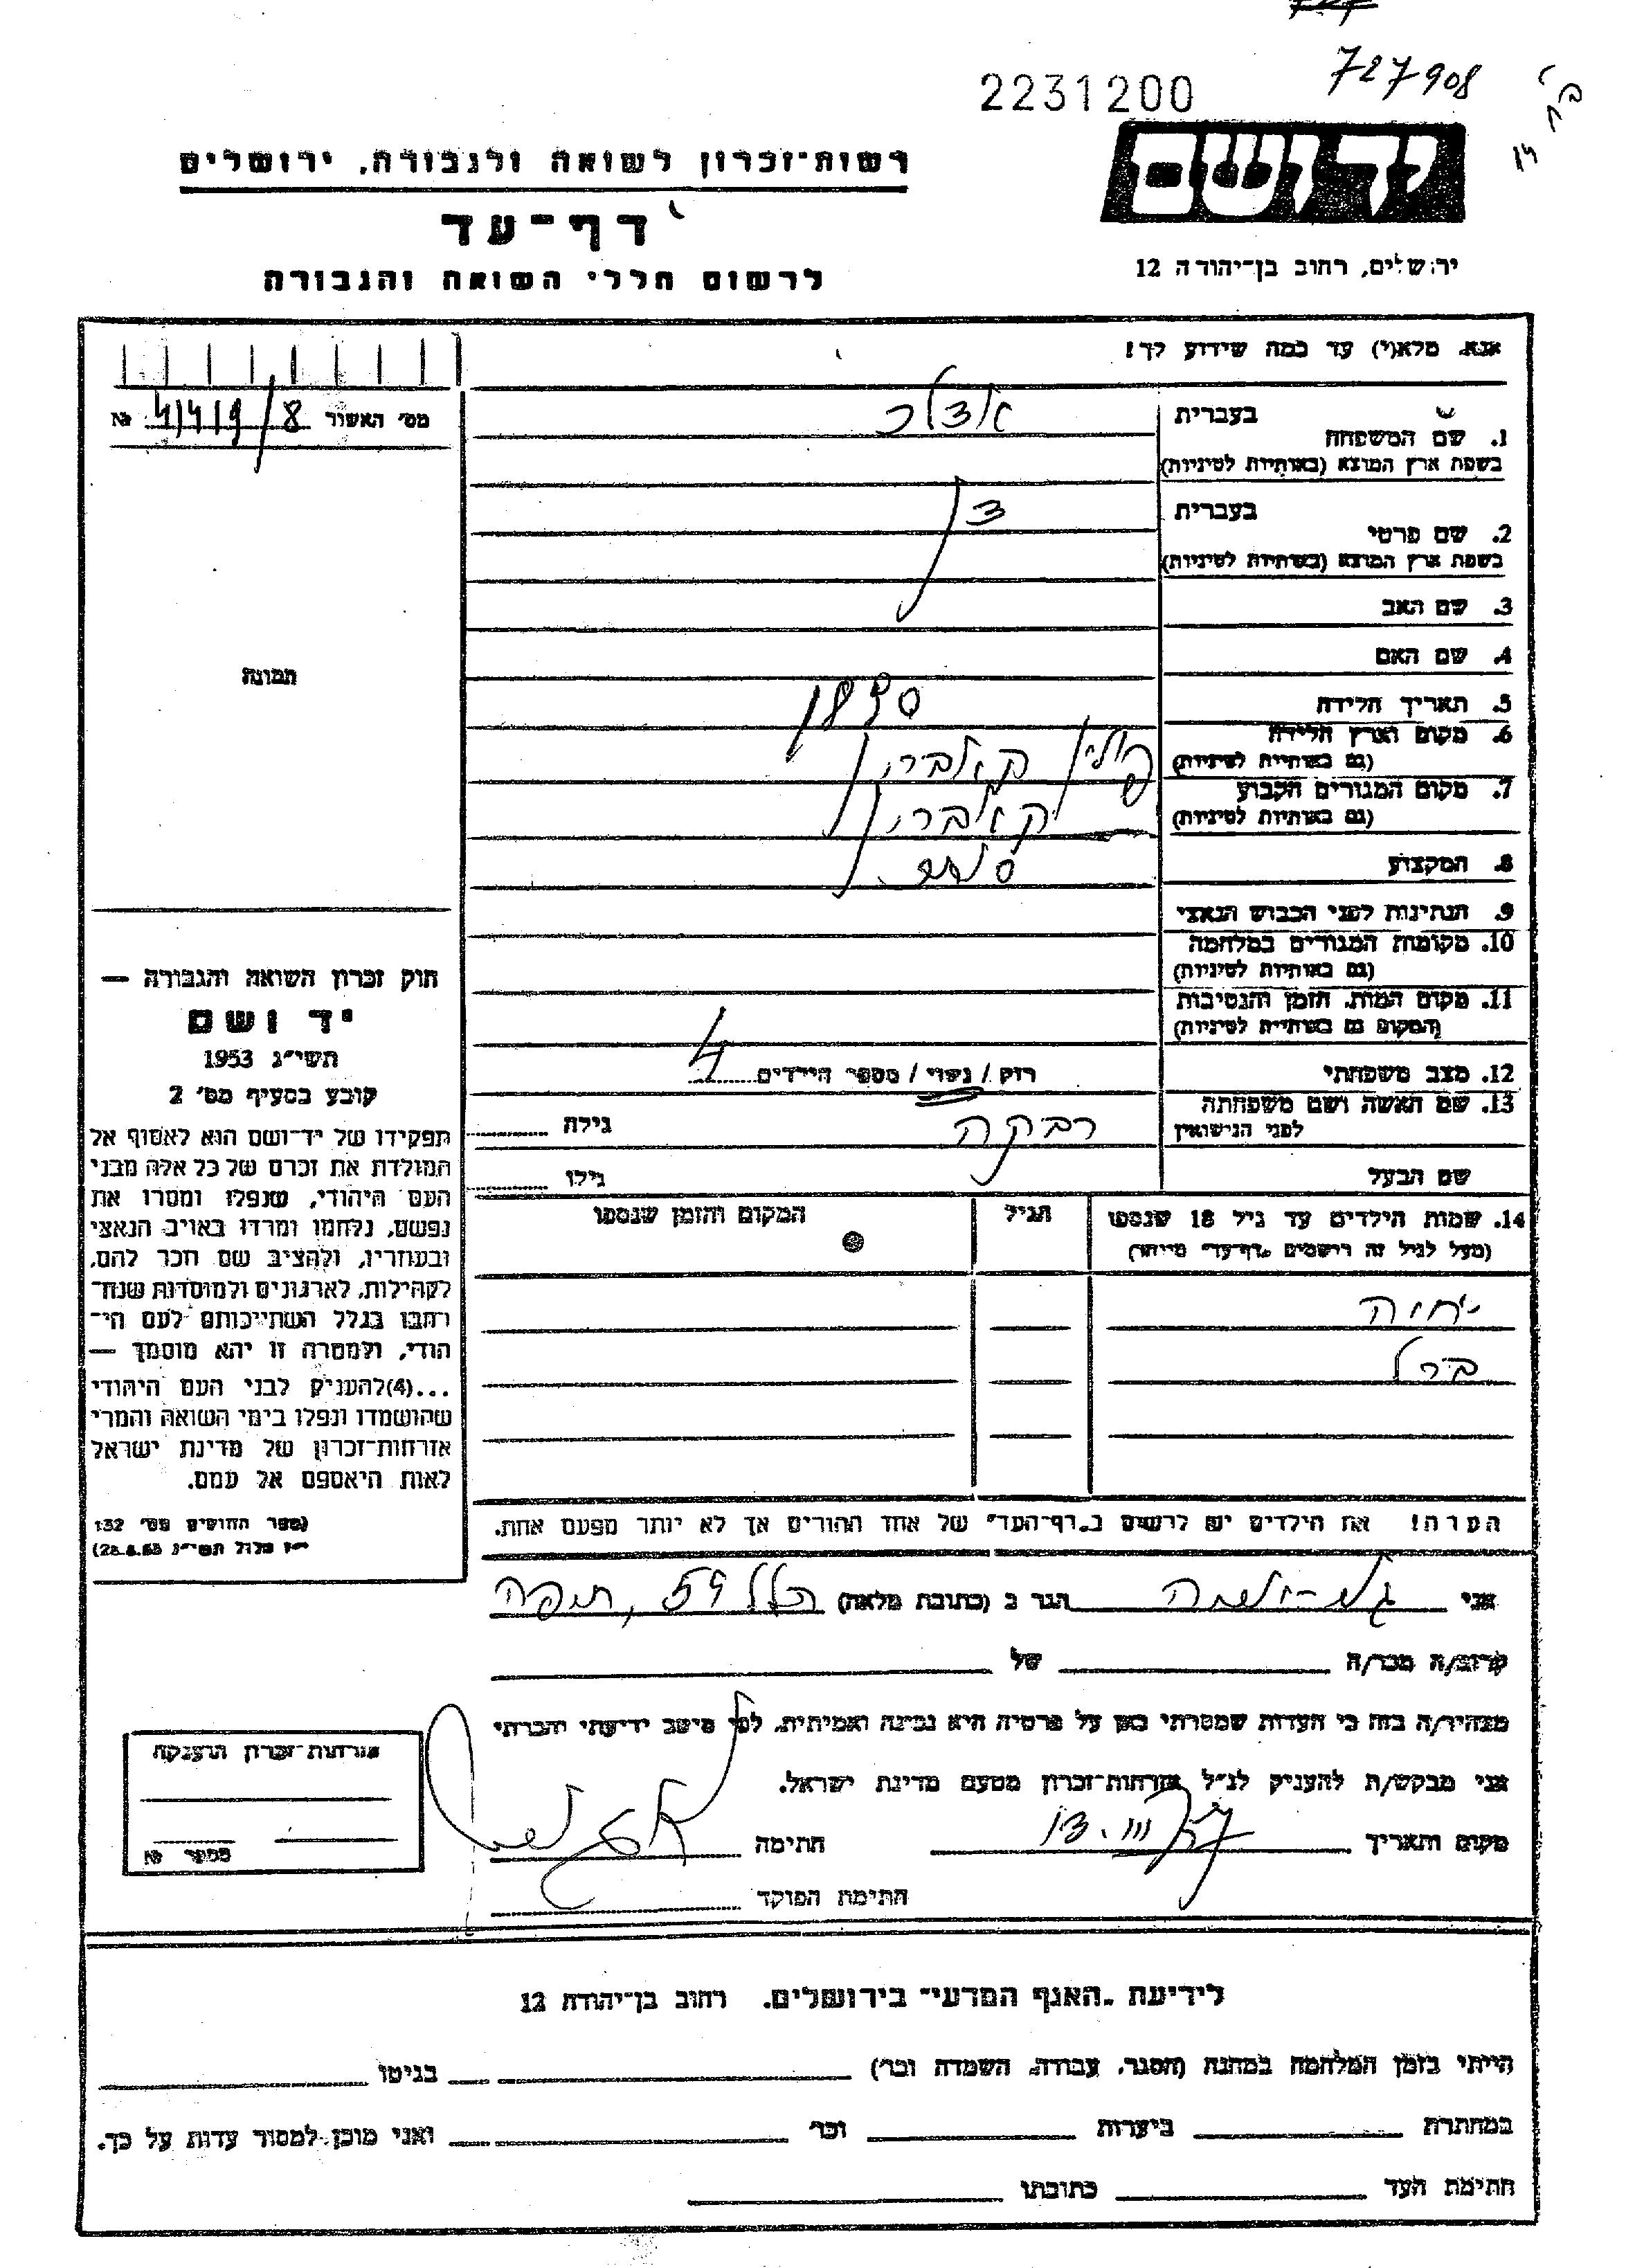 727908
2231200
יד ושם
רשות־זכרון לשואה ולגבורה, ירושלים
דף־עד
לרשום חללי השואה והגבורה
ירושלים, רחוב בן־יהודה 12
אנא, מלא(י) עד כמה שידוע לך!
מס׳ האשור
בעברית
1. שם המשפחה
בשפת ארץ המוצא (באותיות לטיניות)
בעברית
2. שם פרטי
בשפת ארץ המוצא (באותיות לטיניות)
3. שם האב
4. שם האם
5. תאריך הלידה 1890
6. מקום וארץ הלידה פולין
(גם באותיות לטיניות)
7. מקום המגורים הקבוע
(גם באותיות לטיניות)
8. המקצוע סוחר
9. הנתינות לפני הכבוש הנאצי
10. מקומות המגורים במלחמה
(גם באותיות לטיניות)
11. מקום המות, הזמן והנסיבות
(המקום גם באותיות לטיניות)
12. מצב משפחתי רוק / נשוי / מספר הילדים 4
13. שם האשה ושם משפחתה
לפני הנישואין רבקה גילה
שם הבעל גילו
14. שמות הילדים עד גיל 18 שנספו הגיל המקום והזמן שנספו
(מעל לגיל זה רושמים „דף־עד״ מיוחד)
חוה
ברל
הערה! את הילדים יש לרשום ב„דף־העד״ של אחד ההורים אך לא יותר מפעם אחת.
תמונה
חוק זכרון השואה והגבורה —
יד ושם
תשי״ג 1953
קובע בסעיף מס׳ 2
תפקידו של יד־ושם הוא לאסוף אל
המולדת את זכרם של כל אלה מבני
העם היהודי, שנפלו ומסרו את
נפשם, נלחמו ומרדו באויב הנאצי
ובעוזריו, ולהציב שם וזכר להם,
לקהילות, לארגונים ולמוסדות שנח־
רבו בגלל השתייכותם לעם הי־
הודי, ולמטרה זו יהא מוסמך —
...(4) להעניק לבני העם היהודי
שהושמדו ונפלו בימי השואה והמרי
אזרחות־זכרון של מדינת ישראל
לאות היאספם אל עמם.
(ספר החוקים מס׳ 132
י״ז אלול תשי״ג 28.8.53)
אני הגר ב (כתובת מלאה) הלל 59, חיפה
קרוב/ה מכר/ה של
מצהיר/ה בזה כי העדות שמסרתי כאן על פרטיה היא נכונה ואמיתית, לפי מיטב ידיעתי והכרתי
אני מבקש/ת להעניק לנ״ל אזרחות־זכרון מטעם מדינת ישראל.
מקום ותאריך 13.III חתימה
חתימת הפוקד
אזרחות־זכרון הוענקה
מספר №
לידיעת „האגף המדעי״ בירושלים, רחוב בן־יהודה 12
הייתי בזמן המלחמה במחנה (הסגר, עבודה, השמדה וכו׳) בגיטו
במחתרת ביערות וכו׳ ואני מוכן למסור עדות על כך.
חתימת העד כתובתו